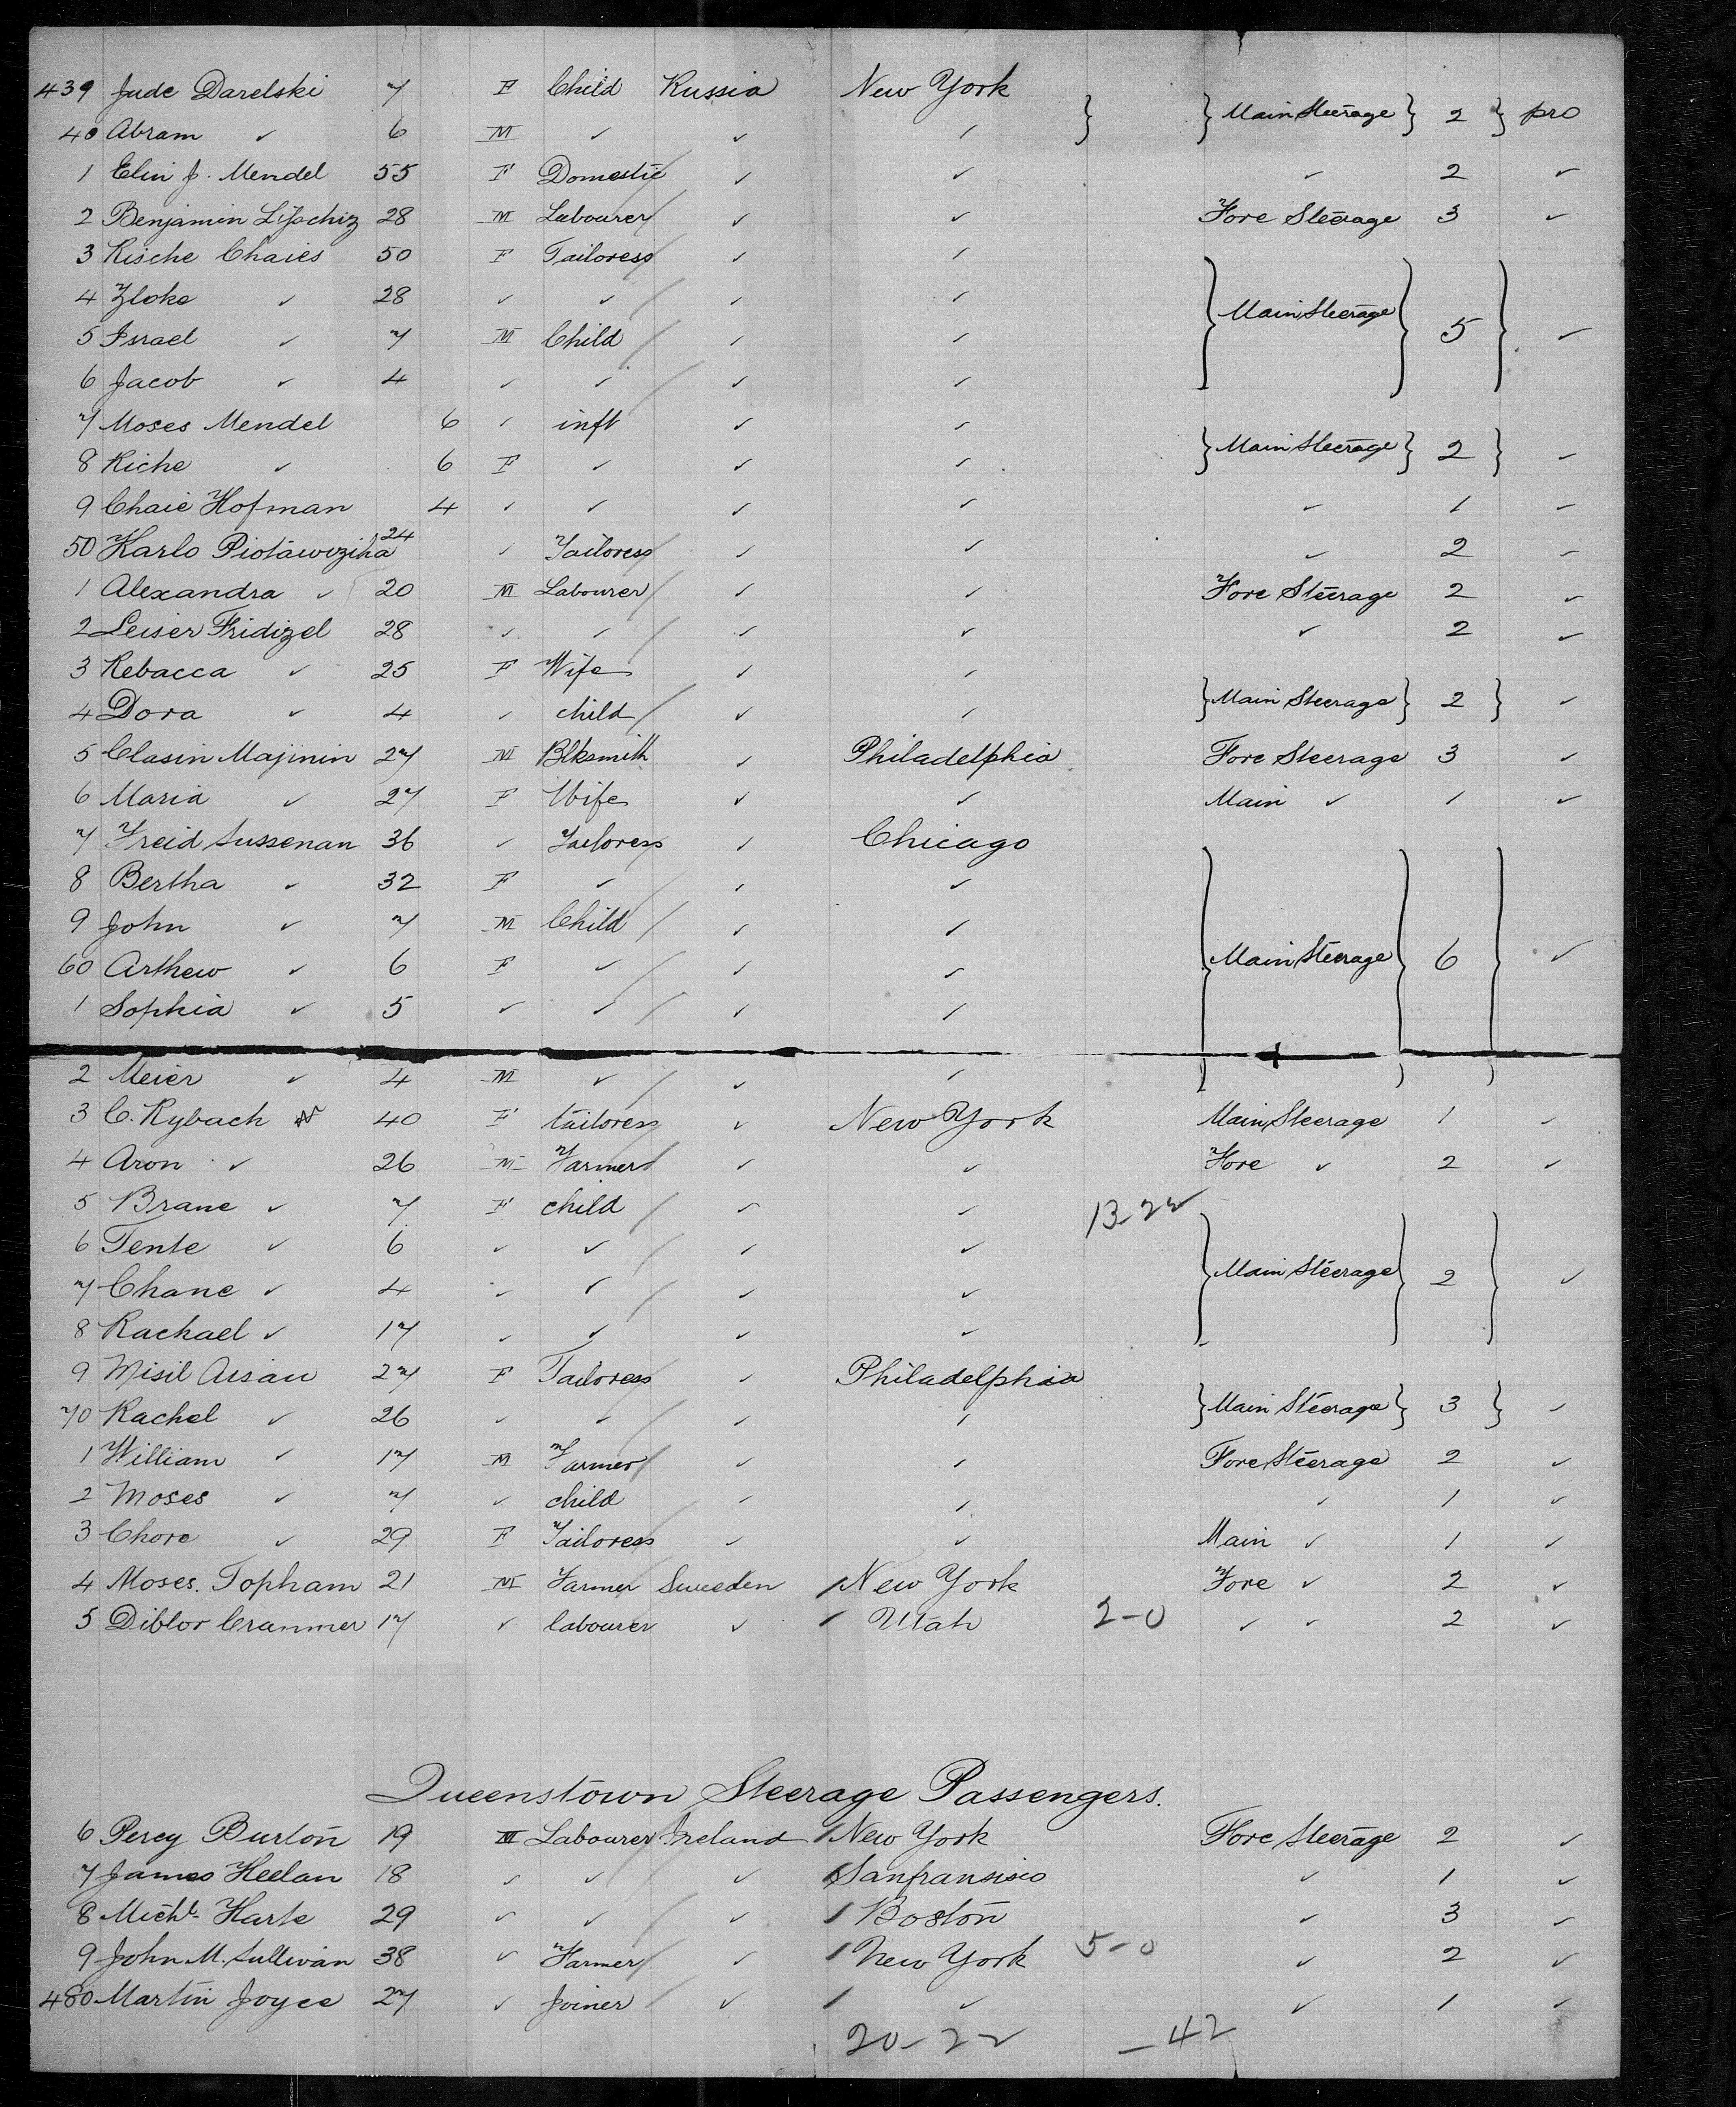 439 Jude Darelski 7 F Child Russia New York } } Main Steerage } 2 } pro
40 Abram ✓ 6 M ✓ ✓ ✓
1 Elin J. Mendel 55 F Domestic ✓ ✓ ✓ 2 ✓
2 Benjamin 28 M Labourer ✓ ✓ Fore Steerage 3 ✓
3 Rische Chaies 50 F Tailoress ✓ ✓
4 Zloke ✓ 28 ✓ ✓ ✓ ✓ } Main Steerage } 5 } ✓
5 Israel ✓ 7 M Child ✓ ✓
6 Jacob ✓ 4 ✓ ✓ ✓ ✓
7 Moses Mendel 6 ✓ inft ✓ ✓ } Main Steerage } 2 } ✓
8 Riche ✓ 6 F ✓ ✓ ✓
9 Chaie Hofman 4 ✓ ✓ ✓ ✓ ✓ 1 ✓
50 Karlo Piotawoziha 24 ✓ Tailoress ✓ ✓ ✓ 2 ✓
1 Alexandra ✓ 20 M Labourer ✓ ✓ Fore Steerage 2 ✓
2 Leiser Fridizel 28 ✓ ✓ ✓ ✓ ✓ 2 ✓
3 Rebacca ✓ 25 F Wife ✓ ✓
4 Dora ✓ 4 ✓ child ✓ ✓ } Main Steerage } 2 } ✓
5 Clasin Majinin 27 M Blksmith ✓ Philadelphia Fore Steerage 3 ✓
6 Maria ✓ 27 F Wife ✓ ✓ Main ✓ 1 ✓
7 Freid Sussenan 36 ✓ Tailoress ✓ Chicago
8 Bertha ✓ 32 F ✓ ✓ ✓
9 John ✓ 7 M Child ✓ ✓
60 Arthew ✓ 6 F ✓ ✓ ✓ } Main Steerage } 6 } ✓
1 Sophia ✓ 5 ✓ ✓ ✓ ✓
2 Meier ✓ 4 M ✓ ✓ ✓
3 C. Rybach 40 F tailoress ✓ New York Main Steerage 1 ✓
4 Aron ✓ 26 M Farmer ✓ ✓ Fore ✓ 2 ✓
5 Brane ✓ 7 F child ✓ ✓ 13-22
6 Tente ✓ 6 ✓ ✓ ✓ ✓
7 Chane ✓ 4 ✓ ✓ ✓ ✓ } Main Steerage } 2 } ✓
8 Rachael ✓ 17 ✓ ✓ ✓ ✓
9 Misil Arsan 27 F Tailoress ✓ Philadelphia
70 Rachel ✓ 26 ✓ ✓ ✓ ✓ } Main Steerage } 3 } ✓
1 William ✓ 17 M Farmer ✓ ✓ Fore Steerage 2 ✓
2 Moses ✓ 7 ✓ child ✓ ✓ ✓ 1 ✓
3 Chore ✓ 29 F Tailoress ✓ ✓ Main ✓ 1 ✓
4 Moses. Topham 21 M Farmer Sweden / New York Fore ✓ 2 ✓
5 Diblor Cranmer 17 ✓ labourer ✓ / Utah 2-0 ✓ ✓ 2 ✓
Queenstown Steerage Passengers.
6 Percy Burton 19 M Labourer Ireland / New York Fore Steerage 2 ✓
7 James Heelan 18 ✓ ✓ ✓ / Sanfransisco ✓ 1 ✓
8 Michl. Harte 29 ✓ ✓ ✓ / Boston ✓ 3 ✓
9 John M. Sullivan 38 ✓ Farmer ✓ / New York 5-0 ✓ 2 ✓
480 Martin Joyce 27 ✓ Joiner ✓ / ✓ ✓ 1 ✓
20-22 -42